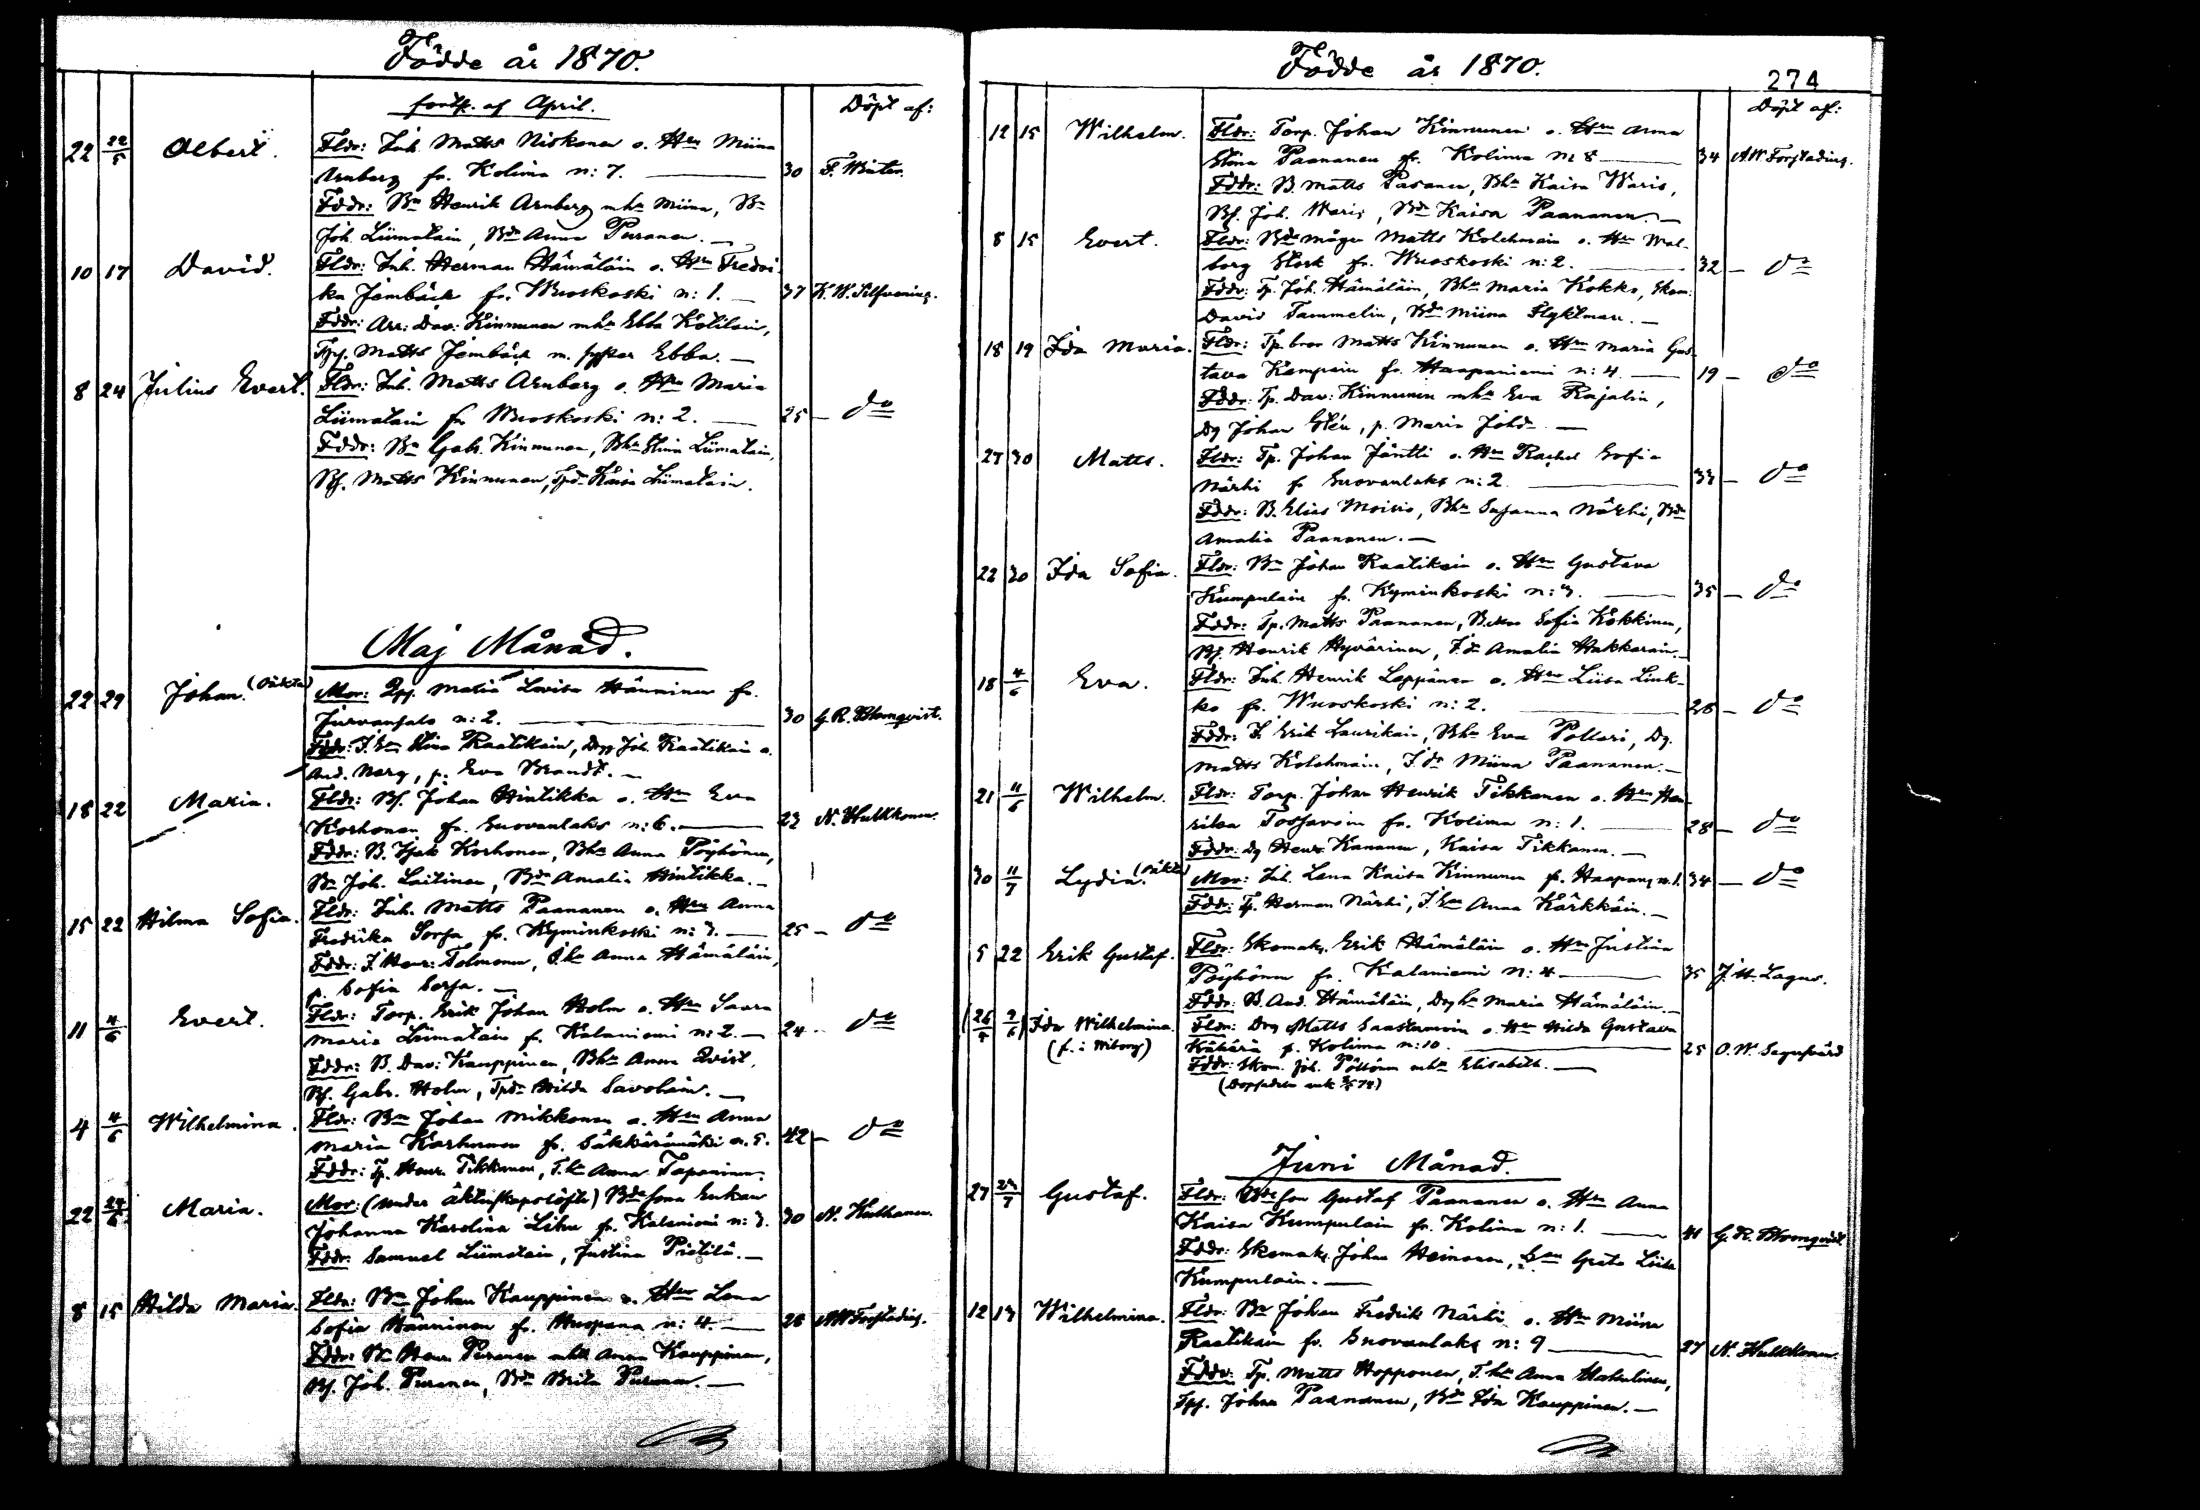 Födde år 1870.
forts. af April.
Döpt af:
22 22/5 Albert. Fldr: Inh. Matts Niskanen o. Hru Miina
Arnberg fr. Kolima n: 7. 30 F. Winter.
Fddr: Bn Henrik Arnberg m hu Miina, Bn
Joh. Liimatain, Bdr Anna Puranen.
10 17 David. Fldr: Inh. Herman Hämäläin o. Hru Fredri
ka Jernbäck fr. Wuoskoski n: 1. 37 K. W. Silfvening.
Fddr: Arr: Dav: Kinnunen m hu Ebba Kotilain,
Tpf. Matts Jernbäck m. syster Ebba.
8 24 Julius Evert. Fldr: Inh. Matts Arnberg o. Hru Maria
Liimatain fr. Wuoskoski n: 2. 25 do
Fddr: Bn Gabr. Kinnunen, Bhu Stina Liimatain,
Bf. Matts Kinnunen, Tpdr Kaisa Liimatain.
Maj Månad.
22 29 Johan. (oäkta) Mor: Lovisa Hänninen fr.
Jurvansalo n: 2. 30 G. R. Blomqvist.
Fddr: Stina Raatikain, Joh. Raatikain o.
And. Norg, p. Eva Brandt.
18 22 Maria. Fldr: Bf. Johan Hintikka o. Hru Eva
Korhonen fr. Suovanlaks n: 6. 23 N. Hulkkonen.
Fddr: B. Isak Korhonen, Bhu Anna Pöyhönen,
Bn Joh. Laitinen, Bdr Amalia Hintikka.
15 22 Hilma Sofia. Fldr: Inh. Matts Paananen o. Hru Anna
Fredrika Sorsa fr. Kyminkoski n: 3. 25 do
Fddr: I. Henr: Tolmonen, I. hu Anna Hämäläin,
p. Sofia Sorsa.
11 4/6 Evert. Fldr: Torp. Erik Johan Holm o. Hru Saara
Maria Liimatain fr. Kalaniemi n: 2. 24 do
Fddr: B. Dav: Kauppinen, Bhu Anna Qvist,
Bf. Gabr. Holm, Tpdr Hilda Savolain.
4 4/6 Wilhelmina. Fldr: Bn Johan Mikkonen o. Hru Anna
Maria Karhunen fr. Säkkärämäki n. 5. 42 do
Fddr: Tp. Henr. Tikkanen, T. hu Anna Taponinen.
22 24/6 Maria. Mor: (under äktenskapslöfte) Bdesona Enkan
Johanna Karolina Lihu fr. Kalaniemi n: 3. 30 N. Hulkkonen.
Fddr: Samuel Liimatain, Justina Pietilä.
8 15 Hilda Maria. Fldr: Bn Johan Kauppinen o. Hru Lena
Sofia Hänninen fr. Haapana n: 4. 26 AW Forstadius.
Fddr: Bn Henr. Puranen m hu Anna Kauppinen,
Bf. Joh. Puranen, Bdr Brita Puranen.
Födde år 1870.
274
Döpt af:
12 15 Wilhelm. Fldr: Torp. Johan Kinnunen o. Hru Anna
Stina Paananen fr. Kolima n: 8 34 AW Forstadius.
Fddr: B. Matts Pasanen, Bhu Kaisa Waris,
Bf. Joh. Waris, Bdr Kaisa Paananen.
8 15 Evert. Fldr: Bdemågen Matts Kolehmain o. Hru Wal-
borg Stark fr. Wuoskoski n: 2. 32 do
Fddr: Tp. Joh. Hämäläin, Bhu Maria Kokko, Skom:
David Tammelin, Bdr Miina Flyktman.
18 19 Ida Maria. Fldr: Tp. bror Matts Kinnunen o. Hru Maria Gus-
tava Kämpäin fr. Haapaniemi n: 4. 19 do
Fddr: Tp. Dav: Kinnunen m hu Eva Rajalin,
Dg Johan Glén, p. Maria Johdr
27 30 Matts. Fldr: Tp. Johan Jäntti o. Hru Rachel Sofia
Närhi fr Suovanlaks n: 2. 33 do
Fddr: B. Elias Moisio, Bhu Susanna Närhi, Bdr
Amalia Paananen.
22 30 Ida Sofia. Fldr: Bn Johan Raatikain o. Hru Gustava
Kumpulain fr. Kyminkoski n: 3. 35 do
Fddr: Tp. Matts Paananen, Sofia Kokkinen,
Bf. Henrik Hyvärinen, I. dr Amalia Hakkarain.
18 4/6 Eva. Fldr: Inh. Henrik Leppänen o. Hru Liisa Link-
ko fr. Wuoskoski n: 2. 26 do
Fddr: I. Erik Laurikain, Bhu Eva Pollari, Dg.
Matts Kolehmain, I. dr Miina Paananen.
21 11/6 Wilhelm. Fldr: Torp. Johan Henrik Tikkanen o. Hru Hen-
rika Tossavain fr. Kolima n: 1. 28 do
Fddr: Dg Henr. Kananen, Kaisa Tikkanen.
30 11/7 Lydia. (oäkta) Mor: Inh. Lena Kaisa Kinnunen fr. Haapan: n. 1. 34 do
Fddr: Tp. Herman Närhi, Anna Kärkkäin.
5 22 Erik Gustaf. Fldr: Skomak. Erik Hämäläin o. Hru Justina
Pöyhönen fr. Kalaniemi n: 4 35 J. H. Lagus.
Fddr: B. And. Hämäläin, Drghu Maria Hämäläin.
(26/5 2/6) Ida Wilhelmina. Fldr: Drg Matts Saastamoin o. Hru Hilda Gustava
(f. i Wiborg) Kähärä fr. Kolima n: 10. 25 O. W. Segersvärd
Fddr: Skom. Joh. Pöllänen m hu Elisabeth.
Juni Månad.
27 24/7 Gustaf. Fldr: Bdeson Gustaf Paananen o. Hru Anna
Kaisa Kumpulain fr. Kolima n: 1. 41 G. R. Blomqvist.
Fddr: Skomak. Johan Heinonen, Greta Liisa
Kumpulain.
12 13 Wilhelmina. Fldr: Bn Johan Fredrik Närhi o. Hru Miina
Raatikain fr. Suovanlaks n: 9 27 N. Hulkkonen.
Fddr: Tp. Matts Hopponen, T. hu Anna Hakulinen,
Tpf. Johan Paananen, Bdr Ida Kauppinen.